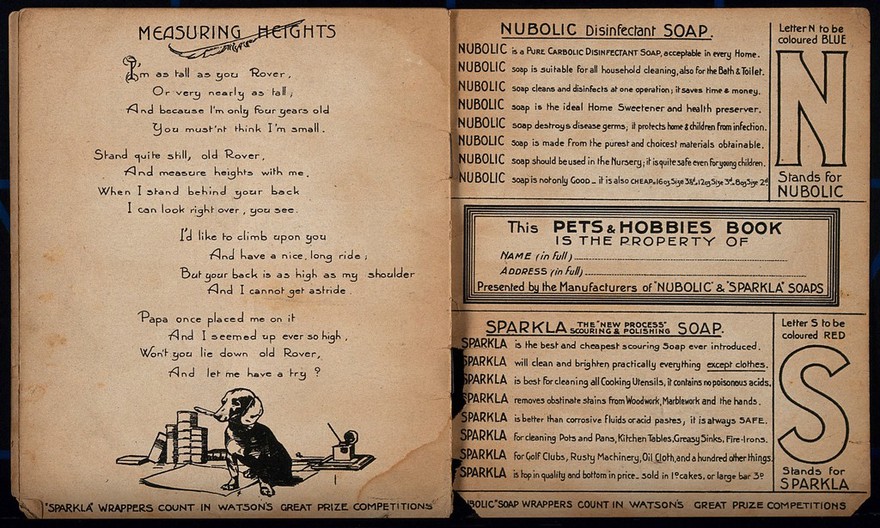 MEASURING HEIGHTS
I'm as tall as you Rover,
Or very nearly as tall;
And because I'm only four years old
You must'nt think I'm small.
Stand quite still, old Rover,
And measure heights with me,
When I stand behind your back
I can look right over, you see.
I'd like to climb upon you
And have a nice, long ride;
But your back is as high as my shoulder
And I cannot get astride.
Papa once placed me on it
And I seemed up ever so high,
Won't you lie down old Rover,
And let me have a try?
"SPARKLA" WRAPPERS COUNT IN WATSON'S GREAT PRIZE COMPETITIONS
NUBOLIC Disinfectant SOAP.
NUBOLIC is a PURE CARBOLIC DISINFECTANT SOAP, acceptable in every Home.
NUBOLIC soap is suitable for all household cleaning, also for the Bath & Toilet.
NUBOLIC soap cleans and disinfects at one operation; it saves time & money.
NUBOLIC soap is the ideal Home Sweetener and health preserver.
NUBOLIC soap destroys disease germs, it protects home & children from infection.
NUBOLIC soap is made from the purest and choicest materials obtainable.
NUBOLIC soap should be used in the Nursery; it is quite safe even for young children.
NUBOLIC soap is not only GOOD_ it is also CHEAP.
Letter N to be
coloured BLUE
N
Stands for
NUBOLIC
This PETS & HOBBIES BOOK
IS THE PROPERTY OF
NAME (in full)
ADDRESS (in full)
Presented by the Manufacturers of "NUBOLIC" & "SPARKLA" SOAPS
SPARKLA THE "NEW PROCESS" SCOURING & POLISHING SOAP.
SPARKLA is the best and cheapest scouring Soap ever introduced.
SPARKLA will clean and brighten practically everything except clothes.
SPARKLA is best for cleaning all Cooking Utensils, it contains no poisonous acids.
SPARKLA removes obstinate stains from Woodwork, Marblework and the hands.
SPARKLA is better than corrosive fluids or acid pastes, it is always SAFE.
SPARKLA for cleaning Pots and Pans, Kitchen Tables, Greasy Sinks, Fire-Irons.
SPARKLA for Golf Clubs, Rusty Machinery, Oil Cloth, and a hundred other things.
SPARKLA is top in quality and bottom in price_ sold in 1ᴰ cakes, or large bar 3ᴰ
Letter S to be
coloured RED
S
Stands for
SPARKLA
BOLIC" SOAP WRAPPERS COUNT IN WATSON'S GREAT PRIZE COMPETITIONS